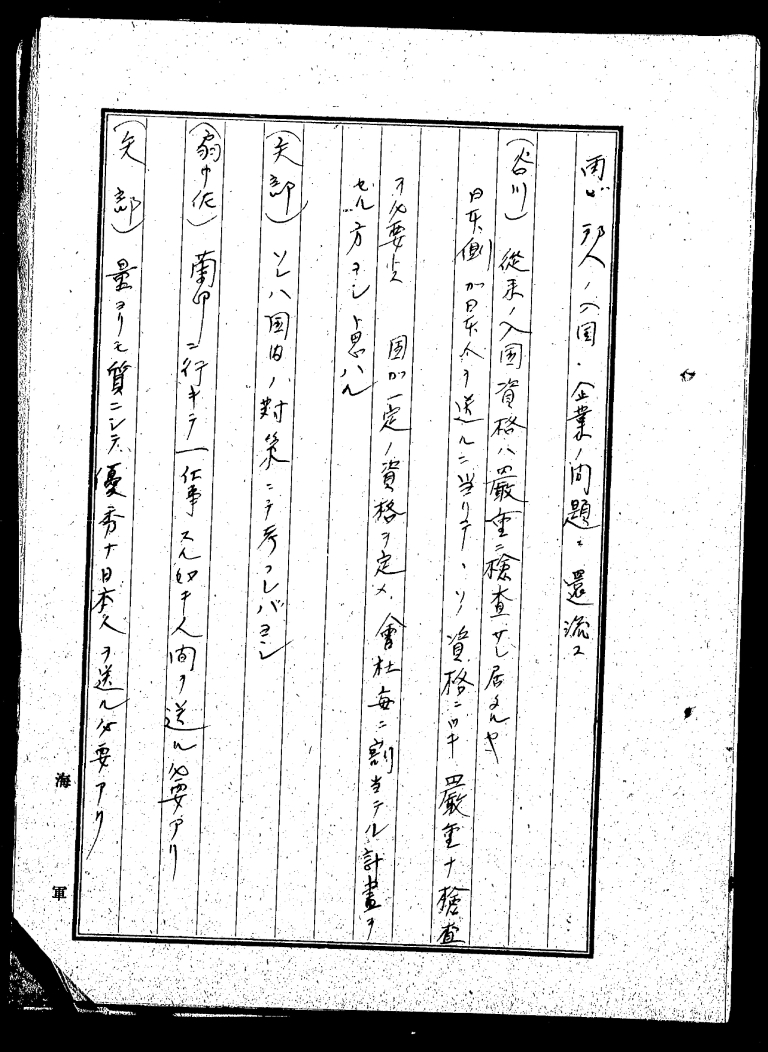 再ビ邦人ノ入国・企業ノ問題ニ還流ス
(谷川) 従来ノ入国資格ハ厳重ニ検査サレ居タルヤ
日本側ガ日本人ヲ送ルニ当リテ、ソノ資格ニツキ厳重ナ検査
ヲ必要トス 国ガ一定ノ資格ヲ定メ、會社毎ニ割当テル計畫ヲ
セル方ヨシト思ハル
(矢部) ソレハ国内ノ対策ニテ考フレバヨシ
(扇中佐) 蘭印ニ行キテ一仕事スル如キ人間ヲ送ル必要アリ
(矢部) 量ヨリモ質ニシテ、優秀ナ日本人ヲ送ル必要アリ
海軍